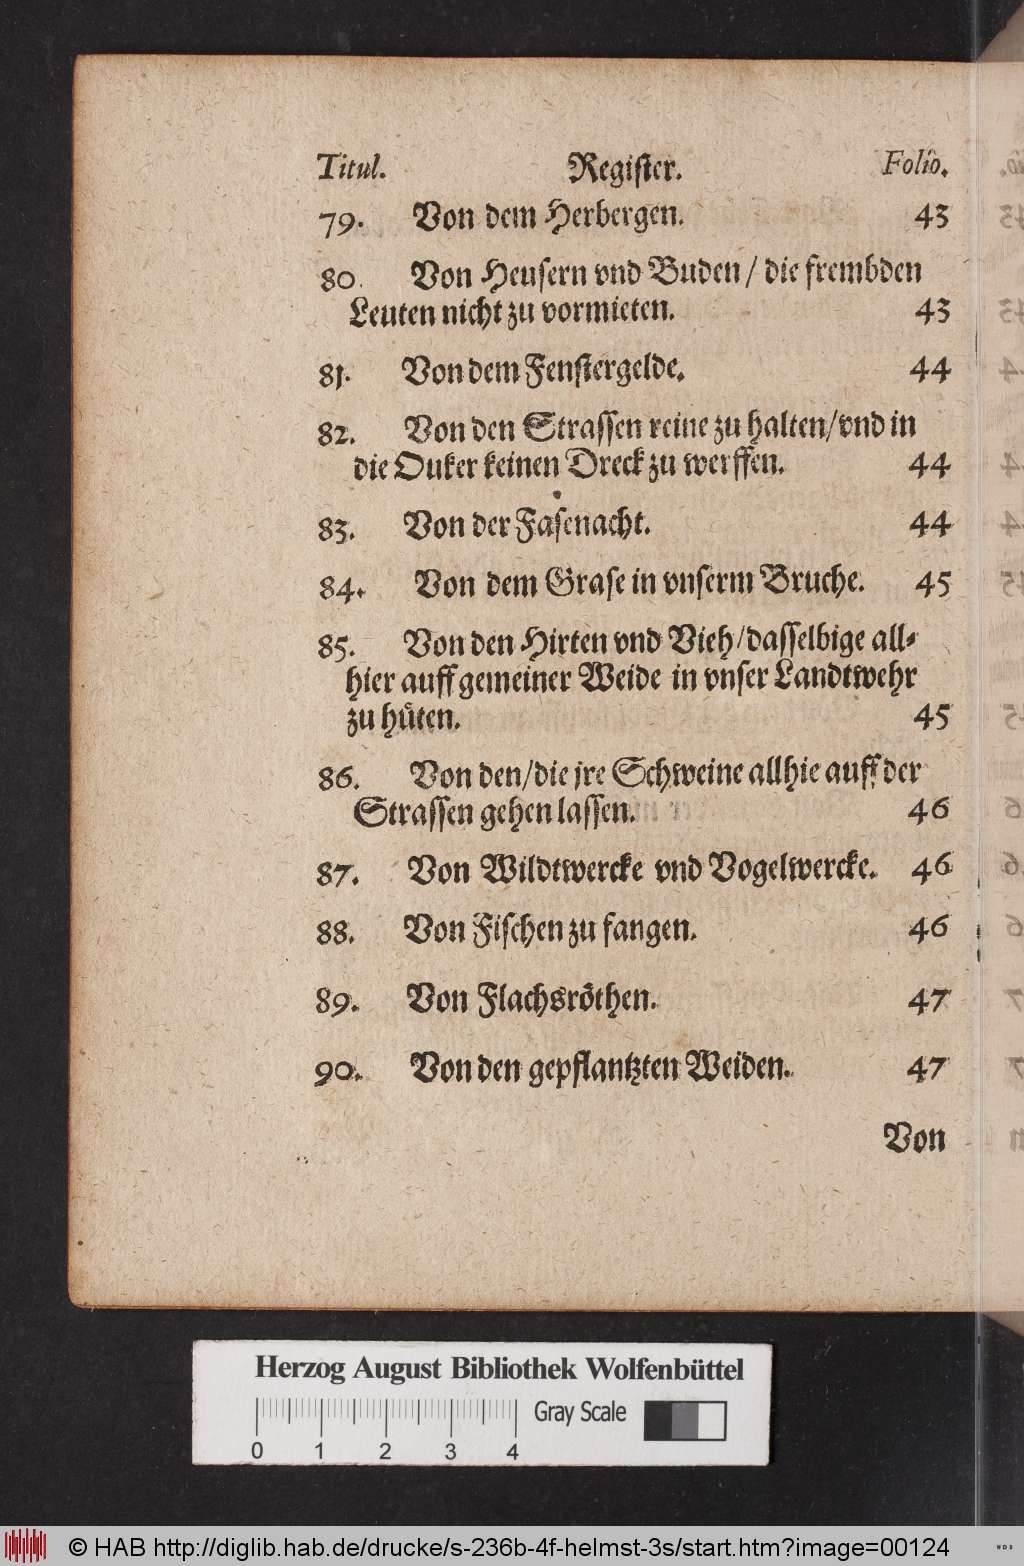 Titul. Register. Folio.
79. Von dem Herbergen. 43
80. Von Heusern vnd Buden / die frembden
Leuten nicht zu vormieten. 43
81. Von dem Fenstergelde. 44
82. Von den Strassen reine zu halten/vnd in
die Ouker keinen Dreck zu werffen. 44
83. Von der Fasenacht. 44
84. Von dem Grase in vnserm Bruche. 45
85. Von den Hirten vnd Vieh/dasselbige all-
hier auff gemeiner Weide in vnser Landtwehr
zu hüten. 45
86. Von den/die jre Schweine allhie auff der
Strassen gehen lassen. 46
87. Von Wildtwercke vnd Vogelwercke. 46
88. Von Fischen zu fangen. 46
89. Von Flachsröthen. 47
90. Von den gepflantzten Weiden. 47
Von
Herzog August Bibliothek Wolfenbüttel
Gray Scale
0 1 2 3 4
© HAB http://diglib.hab.de/drucke/s-236b-4f-helmst-3s/start.htm?image=00124